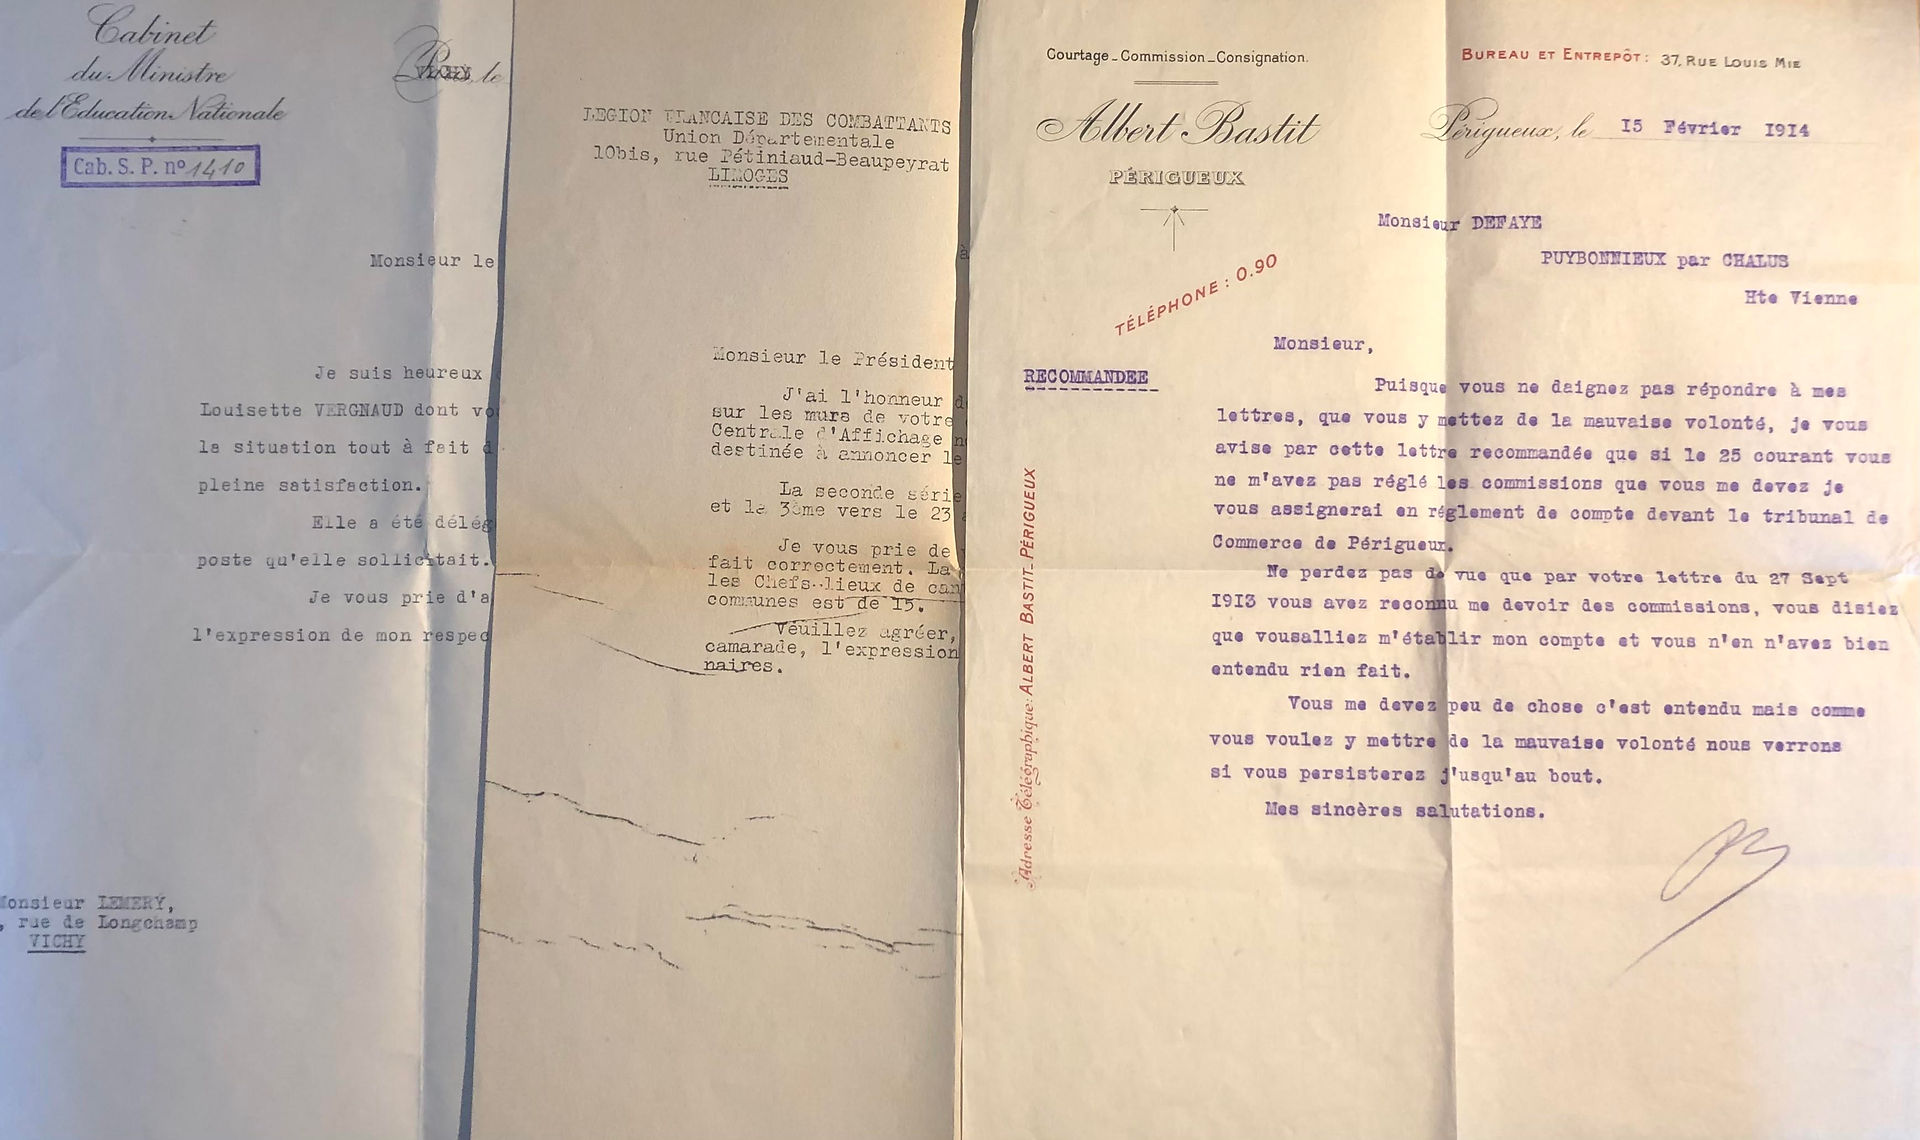 Cabinet
du Ministre
de l'Education Nationale
Paris, le
VICHY
Cab. S. P. nº 1410
Monsieur le
Je suis heureux
Louisette VERGNAUD dont vo
la situation tout à fait d
pleine satisfaction.
Elle a été délég
poste qu'elle sollicitait.
Je vous prie d'a
l'expression de mon respec
Monsieur LEMERY,
, rue de Longchamp
VICHY
LEGION FRANCAISE DES COMBATTANTS
Union Départementale
10bis, rue Pétiniaud-Beaupeyrat
LIMOGES
à
Monsieur le Président
J'ai l'honneur d
sur les murs de votre
Centrale d'Affichage n
destinée à annoncer le
La seconde série
et la 3ème vers le 23 a
Je vous prie de
fait correctement. La
les Chefs-lieux de can
communes est de 15.
Veuillez agréer,
camarade, l'expression
naires.
Courtage - Commission - Consignation.
Albert Bastit
PÉRIGUEUX
TÉLÉPHONE : 0.90
Adresse Télégraphique: ALBERT BASTIT_PÉRIGUEUX
BUREAU ET ENTREPÔT: 37, RUE LOUIS MIE
Périgueux, le 15 Février 1914
Monsieur DEFAYE
PUYBONNIEUX par CHALUS
Hte Vienne
Monsieur,
RECOMMANDEE
Puisque vous ne daignez pas répondre à mes
lettres, que vous y mettez de la mauvaise volonté, je vous
avise par cette lettre recommandée que si le 25 courant vous
ne m'avez pas réglé les commissions que vous me devez je
vous assignerai en réglement de compte devant le tribunal de
Commerce de Périgueux.
Ne perdez pas de vue que par votre lettre du 27 Sept
1913 vous avez reconnu me devoir des commissions, vous disiez
que vousalliez m'établir mon compte et vous n'en n'avez bien
entendu rien fait.
Vous me devez peu de chose c'est entendu mais comme
vous voulez y mettre de la mauvaise volonté nous verrons
si vous persisterez j'usqu'au bout.
Mes sincères salutations.